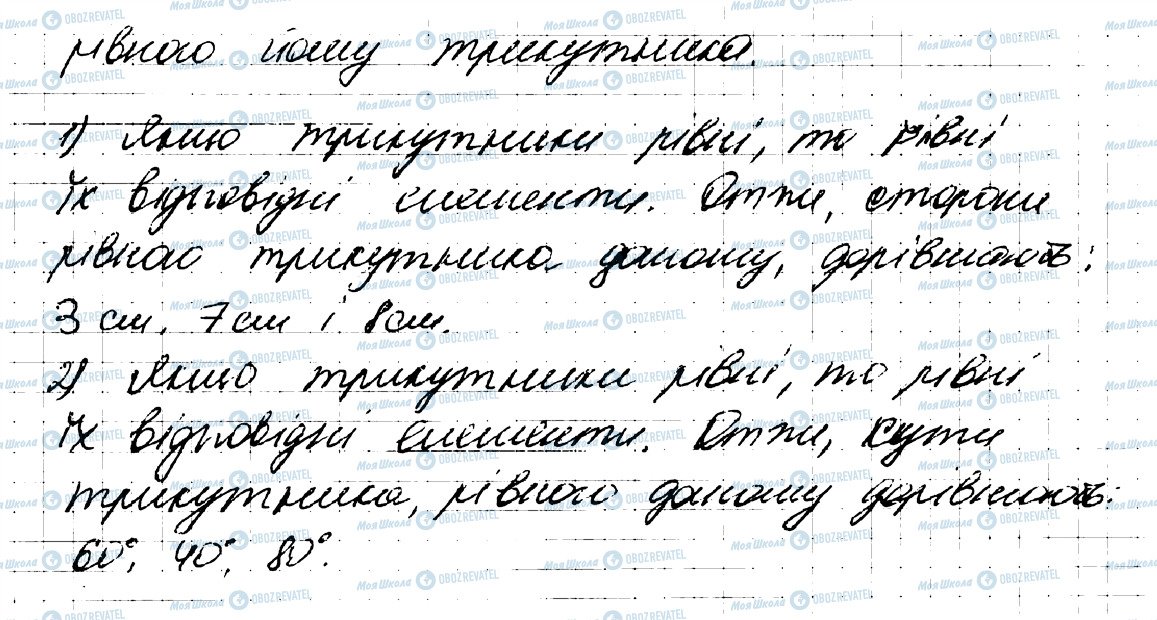 рівного йому трикутника.
1) Якщо трикутники рівні, то рівні
їх відповідні елементи. Отже, сторони
рівного трикутника даному, дорівнюють:
3 см, 7 см і 8 см.
2) Якщо трикутники рівні, то рівні
їх відповідні елементи. Отже, кути
трикутника, рівного даному дорівнюють:
60°, 40°, 80°.